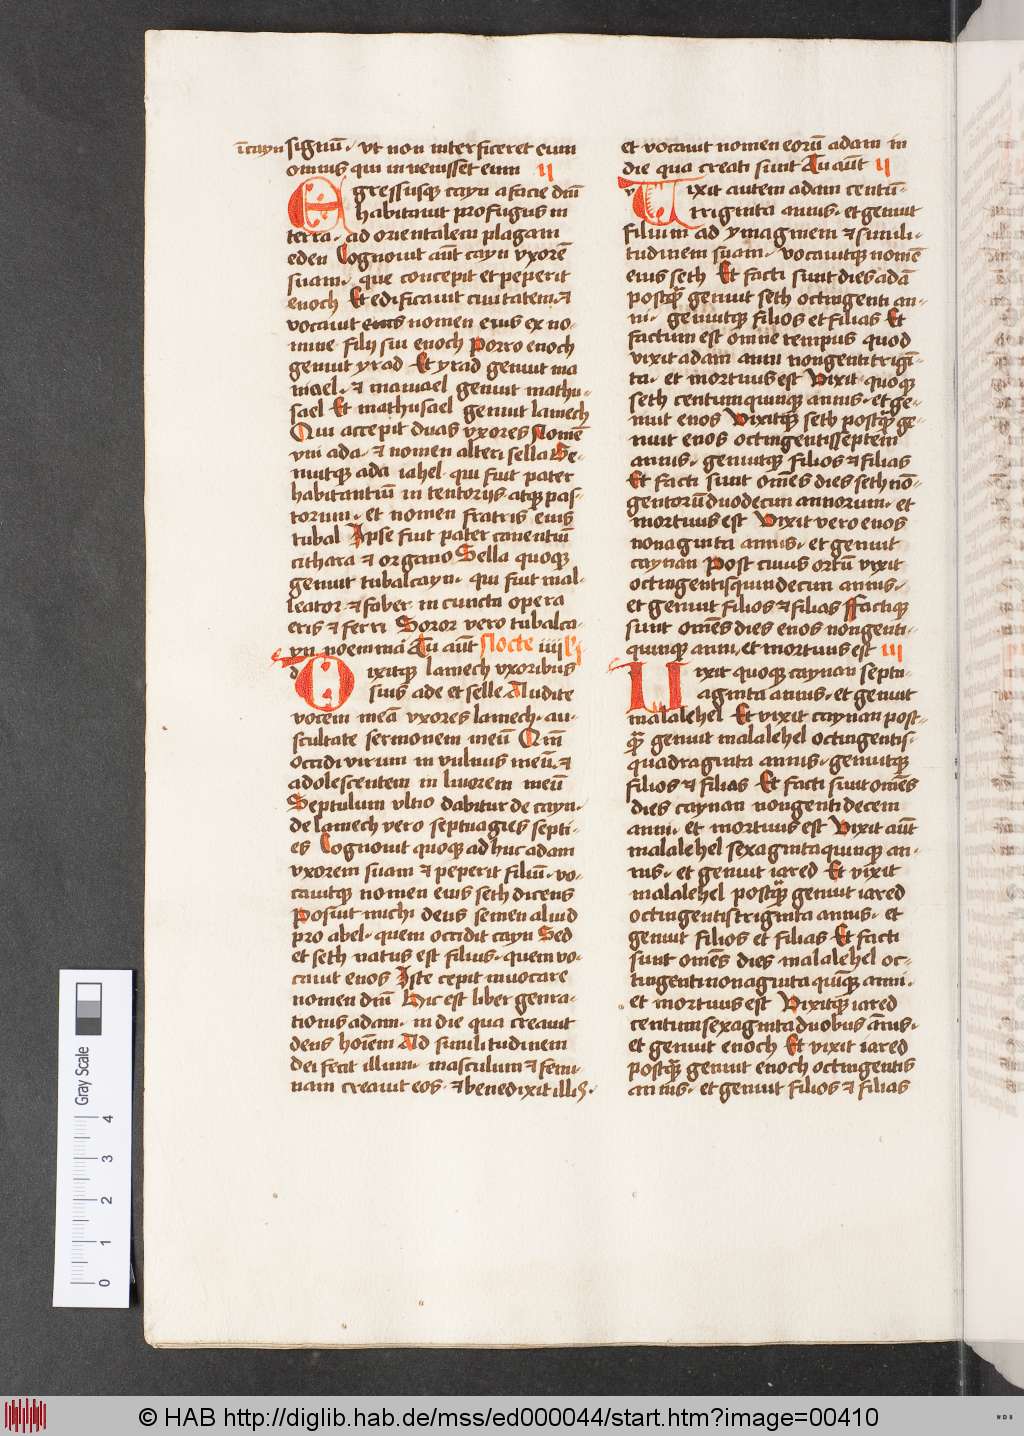 ī cayn signū · vt non interficeret eum
omnis qui inuenisset eum II
Egressusqꝫ cayn a facie dnī
habitauit profugus in
terra · ad orientalem plagam
eden Cognouit aūt cayn vxorē
suam · que concepit et peperit
enoch Et edificauit ciuitatem · ⁊
vocauit nomen eius ex no-
mine filij sui enoch Porro enoch
genuit yrad Et yrad genuit ma
mael · ⁊ mauiael genuit mathu-
sael Et mathusael genuit lamech
Qui accepit duas vxores Nomē
vni ada · ⁊ nomen alteri sella Ge-
nuitqꝫ ada iahel · qui fuit pater
habitantiū in tentorijs · atqꝫ pas-
torum · et nomen fratris eius
tubal Ipse fuit pater canentiū
cithara ⁊ organo Sella quoqꝫ
genuit tubalcayn · qui fuit mal-
leator ⁊ faber in cuncta opera
eris ⁊ ferri Soror vero tubalca-
yn noemma Tu aūt Nocte iiii
d Dixitqꝫ lamech vxoribus
suis ade et selle Audite
vocem meā vxores lamech · au-
scultate sermonem meū Qm̄
occidi virum in vulnus meū · ⁊
adolescentem in liuorem meū
Septulum vltio dabitur de cayn ·
de lamech vero septuagies septi-
es Cognouit quoqꝫ adhuc adam
vxorem suam ⁊ peperit filiū · vo-
cauitqꝫ nomen eius seth dicens
Posuit michi deus semen aliud
pro abel · quem occidit cayn Sed
et seth natus est filius · quem vo-
cauit enos Iste cepit inuocare
nomen dnī Hic est liber genra-
tionis adam · in die qua creauit
deus hoīem Ad similitudinem
dei fecit illum · masculum ⁊ femi-
nam creauit eos · ⁊ benedixit illis ·
et vocauit nomen eorū adam in
die qua creati sunt Tu aūt II
v Vixit autem adam centū-
triginta annis · et genuit
filium ad ymaginem ⁊ simili-
tudinem suam · vocauitqꝫ nomē
eius seth Et facti sunt dies adā
postqꝫ̄ genuit seth octingenti an-
ni · genuitqꝫ filios et filias Et
factum est omne tempus quod
vixit adam anni nongentitrigī-
ta · et mortuus est Vixit quoqꝫ
seth centumquinqꝫ annis · et ge-
nuit enos Vixitqꝫ seth postqꝫ̄ ge-
nuit enos octingentisseptem
annis · genuitqꝫ filios ⁊ filias
Et facti sunt omēs dies seth nō-
gentorū duodecim annorum · et
mortuus est Vixit vero enos
nonaginta annis · et genuit
caynan Post cuius ortū vixit
octingentisquindecim annis ·
et genuit filios ⁊ filias Factiqꝫ
sunt omēs dies enos nongenti-
quinqꝫ anni, et mortuus est III
Uixit quoqꝫ caynan septu-
aginta annis · et genuit
malalehel Et vixit caynan post-
qꝫ̄ genuit malalehel octingentis-
quadraginta annis · genuitqꝫ
filios ⁊ filias Et facti sunt omēs
dies caynan nongentidecem
anni · et mortuus est Vixit aūt
malalehel sexagintaquinqꝫ an-
nis · et genuit iared Et vixit
malalehel postqꝫ̄ genuit iared
octingentistriginta annis · et
genuit filios et filias Et facti
sunt omēs dies malalehel oc-
tingentinonaginta quīqꝫ anni ·
et mortuus est Vixitqꝫ iared
centumsexagintaduobus ānis ·
et genuit enoch Et vixit iared
postqꝫ̄ genuit enoch octingentis
annis · et genuit filios ⁊ filias
Gray Scale
0 1 2 3 4
© HAB http://diglib.hab.de/mss/ed000044/start.htm?image=00410